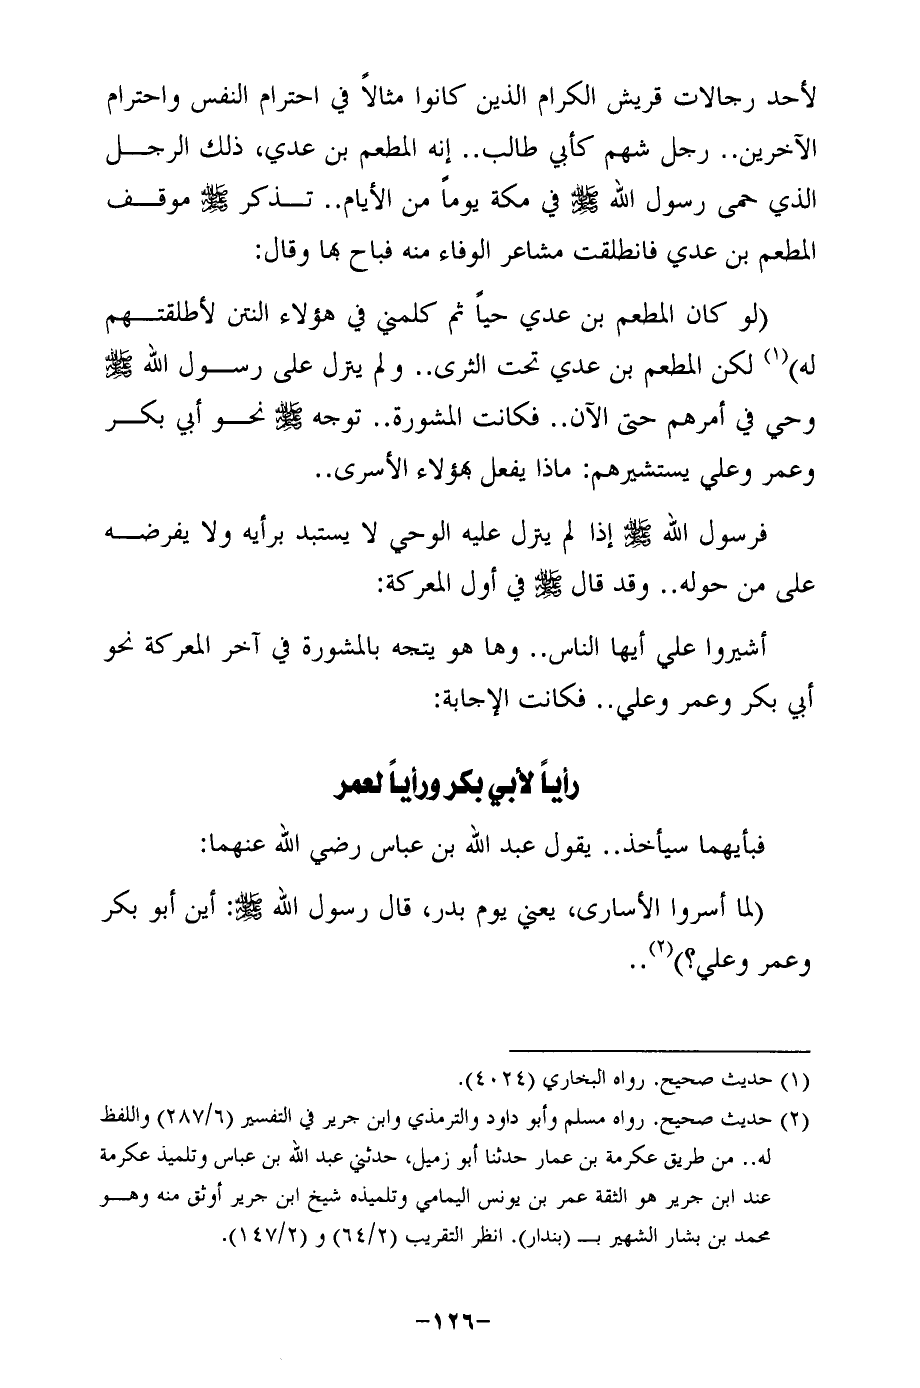 لأحد رجالات قريش الكرام الذين كانوا مثالاً في احترام النفس واحترام
الآخرين.. رجل شهم كأبي طالب.. إنه المطعم بن عدي، ذلك الرجـــل
الذي حمى رسول الله ﷺ في مكة يوماً من الأيام.. تـــذكر ﷺ موقـــف
المطعم بن عدي فانطلقت مشاعر الوفاء منه فباح بها وقال:
(لو كان المطعم بن عدي حياً ثم كلمني في هؤلاء النتن لأطلقتـــهم
له)(١) لكن المطعم بن عدي تحت الثرى.. ولم ينزل على رســـول الله ﷺ
وحي في أمرهم حتى الآن.. فكانت المشورة.. توجه ﷺ نحـــو أبي بكـــر
وعمر وعلي يستشيرهم: ماذا يفعل بهؤلاء الأسرى..
فرسول الله ﷺ إذا لم ينزل عليه الوحي لا يستبد برأيه ولا يفرضـــه
على من حوله.. وقد قال ﷺ في أول المعركة:
أشيروا علي أيها الناس.. وها هو يتجه بالمشورة في آخر المعركة نحو
أبي بكر وعمر وعلي.. فكانت الإجابة:
رأياً لأبي بكر ورأياً لعمر
فبأيهما سيأخذ.. يقول عبد الله بن عباس رضي الله عنهما:
(لما أسروا الأسارى، يعني يوم بدر، قال رسول الله ﷺ: أين أبو بكر
وعمر وعلي؟)(٢)..
(١) حديث صحيح. رواه البخاري (٤٠٢٤).
(٢) حديث صحيح. رواه مسلم وأبو داود والترمذي وابن جرير في التفسير (٢٨٧/٦) واللفظ
له.. من طريق عكرمة بن عمار حدثنا أبو زميل، حدثني عبد الله بن عباس وتلميذ عكرمة
عند ابن جرير هو الثقة عمر بن يونس اليمامي وتلميذه شيخ ابن جرير أوثق منه وهـــو
محمد بن بشار الشهير بـــ (بندار). انظر التقريب (٦٤/٢) و (١٤٧/٢).
-١٢٦-